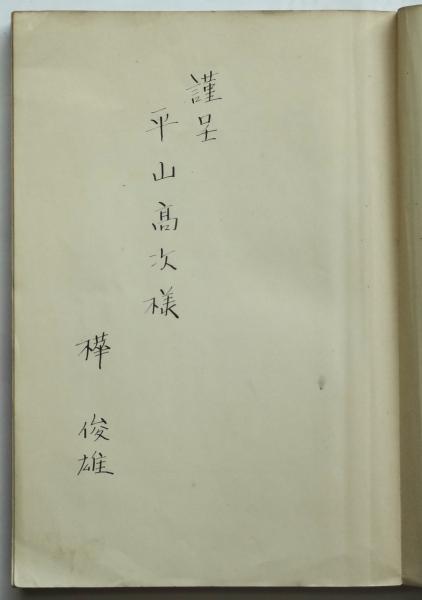 謹呈
平山高次様
樺俊雄